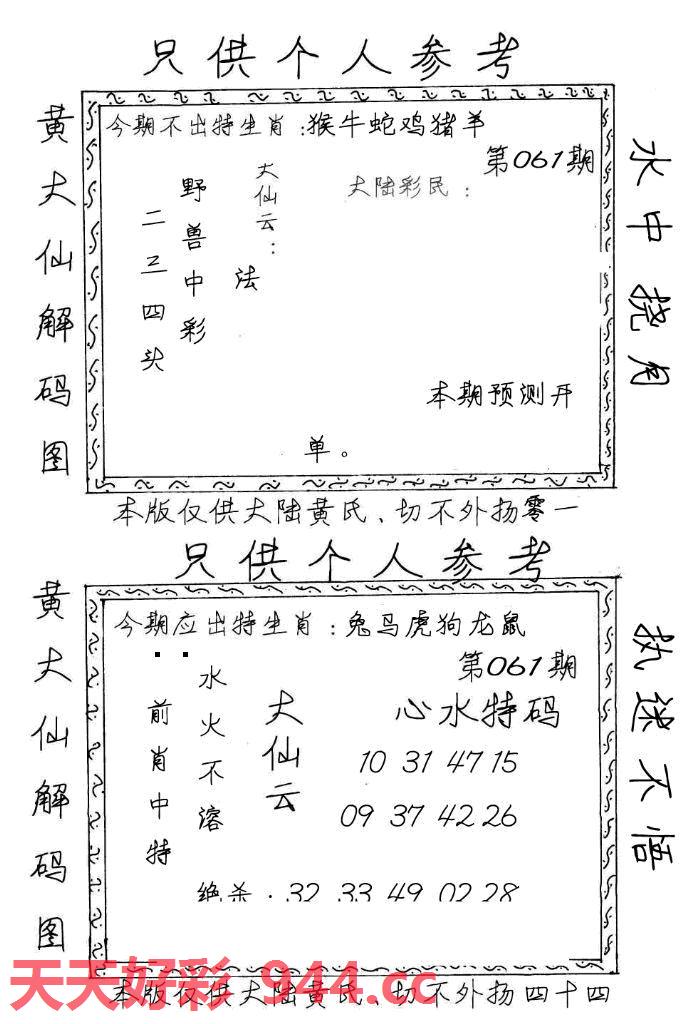 只供个人参考
黄大仙解码图
今期不出特生肖：猴牛蛇鸡猪羊
第061期
大陆彩民：
大仙云：
法
野兽中彩
二三四头
本期预测开
单。
水中捞月
本版仅供大陆黄氏、切不外扬零一
只供个人参考
黄大仙解码图
今期应出特生肖：兔马虎狗龙鼠
第061期
心水特码
10 31 47 15
09 37 42 26
大仙云
水火不溶
前肖中特
绝杀：32 33 49 02 28
执迷不悟
天天好彩 944.cc
本版仅供大陆黄氏、切不外扬四十四